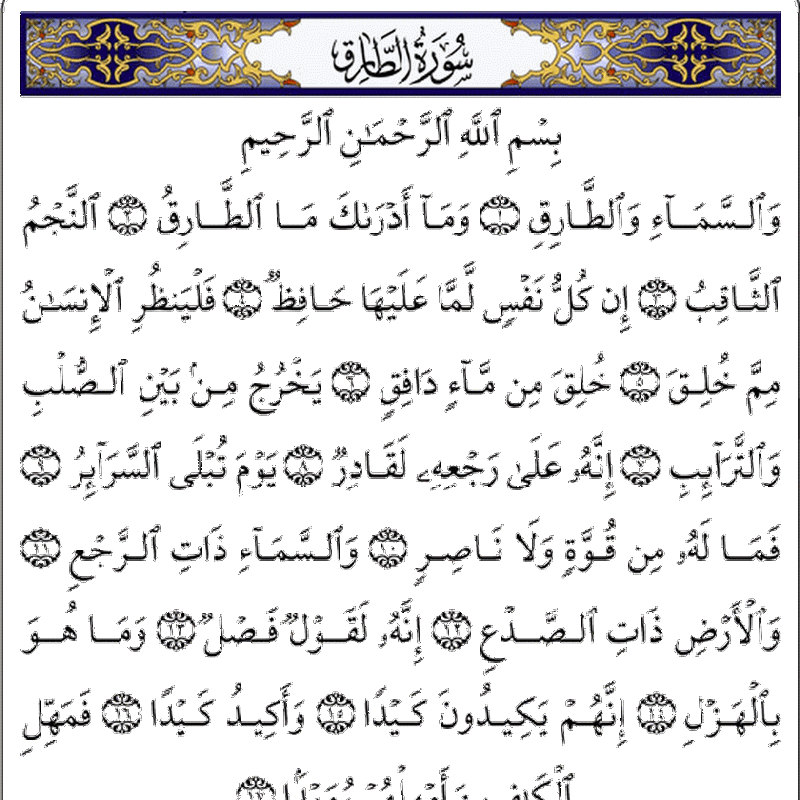 سُورَةُ الطَّارِقِ
بِسْمِ ٱللَّهِ ٱلرَّحْمَٰنِ ٱلرَّحِيمِ
وَٱلسَّمَآءِ وَٱلطَّارِقِ ١ وَمَآ أَدْرَىٰكَ مَا ٱلطَّارِقُ ٢ ٱلنَّجْمُ
ٱلثَّاقِبُ ٣ إِن كُلُّ نَفْسٍ لَّمَّا عَلَيْهَا حَافِظٌ ٤ فَلْيَنظُرِ ٱلْإِنسَٰنُ
مِمَّ خُلِقَ ٥ خُلِقَ مِن مَّآءٍ دَافِقٍ ٦ يَخْرُجُ مِنۢ بَيْنِ ٱلصُّلْبِ
وَٱلتَّرَآئِبِ ٧ إِنَّهُۥ عَلَىٰ رَجْعِهِۦ لَقَادِرٌ ٨ يَوْمَ تُبْلَى ٱلسَّرَآئِرُ ٩
فَمَا لَهُۥ مِن قُوَّةٍ وَلَا نَاصِرٍ ١٠ وَٱلسَّمَآءِ ذَاتِ ٱلرَّجْعِ ١١
وَٱلْأَرْضِ ذَاتِ ٱلصَّدْعِ ١٢ إِنَّهُۥ لَقَوْلٌ فَصْلٌ ١٣ وَمَا هُوَ
بِٱلْهَزْلِ ١٤ إِنَّهُمْ يَكِيدُونَ كَيْدًا ١٥ وَأَكِيدُ كَيْدًا ١٦ فَمَهِّلِ
ٱلْكَٰفِرِينَ أَمْهِلْهُمْ رُوَيْدًۢا ١٧